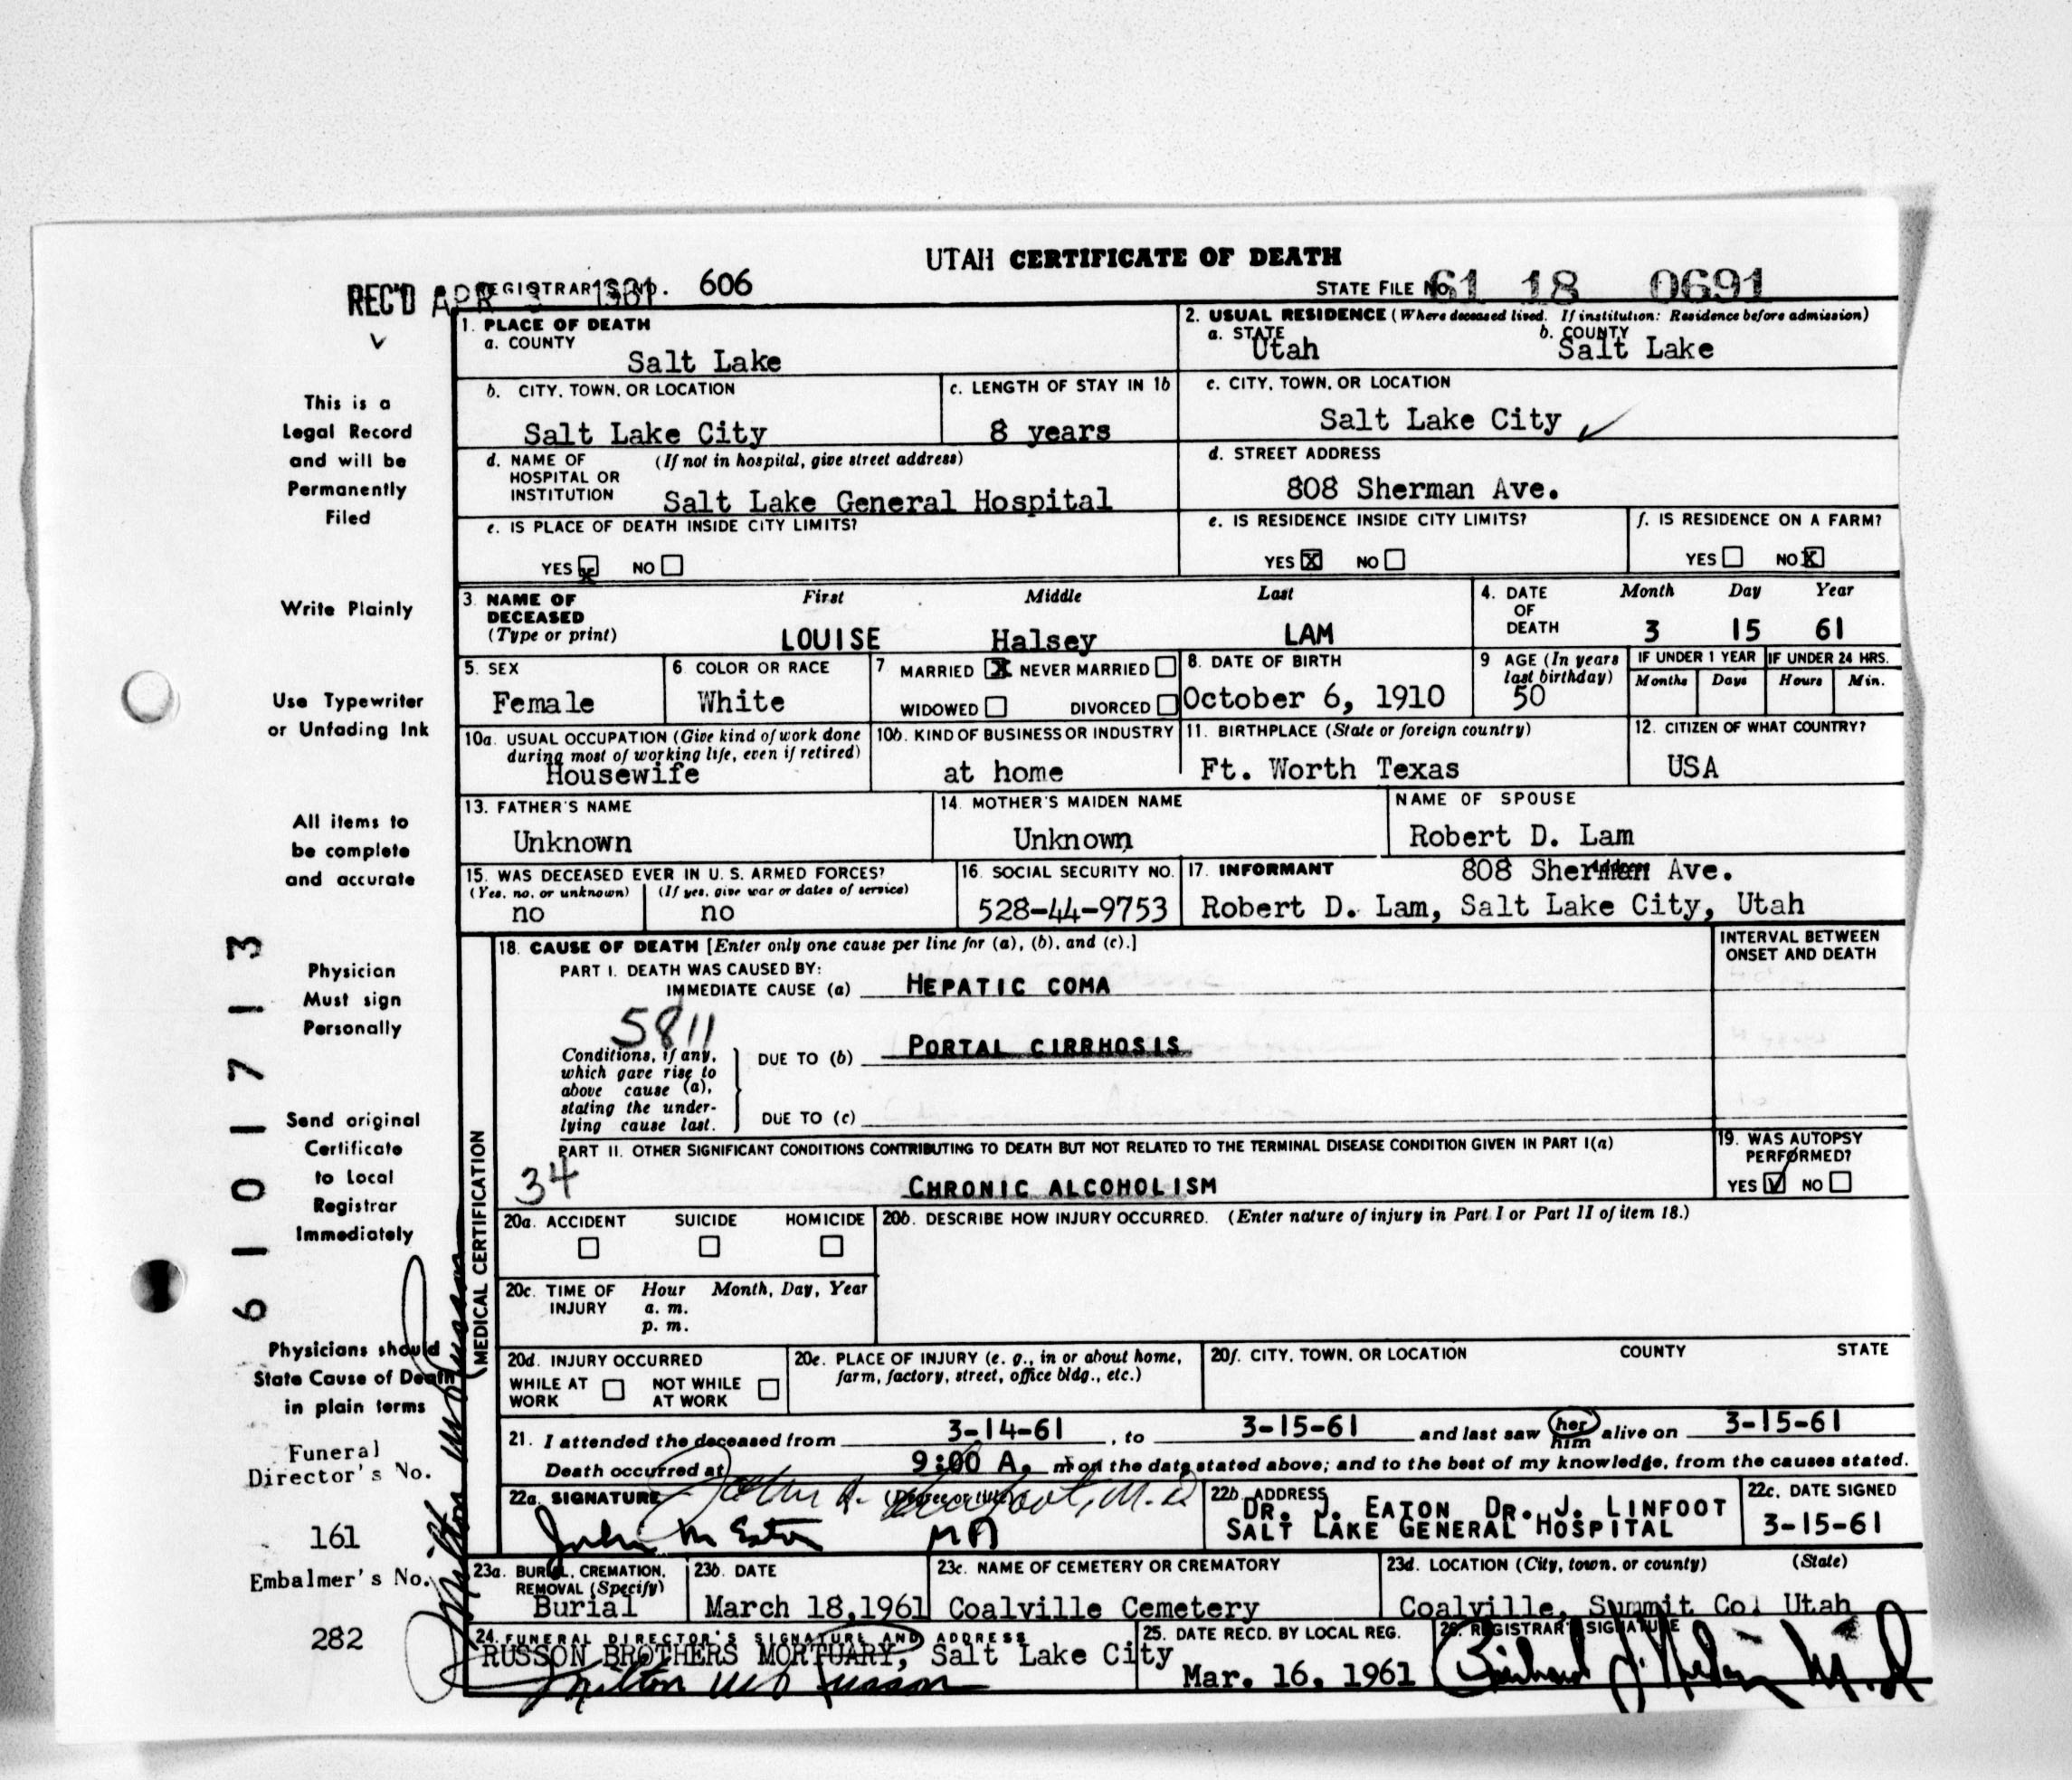 UTAH CERTIFICATE OF DEATH
REC'D APR 3 1961
REGISTRAR'S NO. 606
STATE FILE NO. 61 18 0691
1. PLACE OF DEATH
a. COUNTY
Salt Lake
2. USUAL RESIDENCE (Where deceased lived. If institution: Residence before admission)
a. STATE
Utah
b. COUNTY
Salt Lake
b. CITY, TOWN, OR LOCATION
Salt Lake City
c. LENGTH OF STAY IN 1b
8 years
c. CITY, TOWN, OR LOCATION
Salt Lake City
d. NAME OF HOSPITAL OR INSTITUTION
(If not in hospital, give street address)
Salt Lake General Hospital
d. STREET ADDRESS
808 Sherman Ave.
e. IS PLACE OF DEATH INSIDE CITY LIMITS?
YES X NO
e. IS RESIDENCE INSIDE CITY LIMITS?
YES X NO
f. IS RESIDENCE ON A FARM?
YES NO X
3. NAME OF DECEASED
(Type or print)
First Middle Last
LOUISE Halsey LAM
4. DATE OF DEATH
Month Day Year
3 15 61
5. SEX
Female
6 COLOR OR RACE
White
7 MARRIED X NEVER MARRIED
WIDOWED DIVORCED
8. DATE OF BIRTH
October 6, 1910
9 AGE (In years last birthday)
50
IF UNDER 1 YEAR
Months Days
IF UNDER 24 HRS.
Hours Min.
10a. USUAL OCCUPATION (Give kind of work done during most of working life, even if retired)
Housewife
10b. KIND OF BUSINESS OR INDUSTRY
at home
11. BIRTHPLACE (State or foreign country)
Ft. Worth Texas
12. CITIZEN OF WHAT COUNTRY?
USA
13. FATHER'S NAME
Unknown
14. MOTHER'S MAIDEN NAME
Unknown
NAME OF SPOUSE
Robert D. Lam
15. WAS DECEASED EVER IN U. S. ARMED FORCES?
(Yes, no, or unknown)
no
(If yes, give war or dates of service)
no
16. SOCIAL SECURITY NO.
528-44-9753
17. INFORMANT
Address
808 Sherman Ave.
Robert D. Lam, Salt Lake City, Utah
MEDICAL CERTIFICATION
18. CAUSE OF DEATH [Enter only one cause per line for (a), (b), and (c).]
PART I. DEATH WAS CAUSED BY:
IMMEDIATE CAUSE (a) HEPATIC COMA
INTERVAL BETWEEN ONSET AND DEATH
5811
Conditions, if any, which gave rise to above cause (a), stating the underlying cause last.
DUE TO (b) PORTAL CIRRHOSIS
DUE TO (c)
PART II. OTHER SIGNIFICANT CONDITIONS CONTRIBUTING TO DEATH BUT NOT RELATED TO THE TERMINAL DISEASE CONDITION GIVEN IN PART I(a)
34
CHRONIC ALCOHOLISM
19. WAS AUTOPSY PERFORMED?
YES ✓ NO
20a. ACCIDENT SUICIDE HOMICIDE
20b. DESCRIBE HOW INJURY OCCURRED. (Enter nature of injury in Part I or Part II of item 18.)
20c. TIME OF INJURY Hour Month, Day, Year
a. m.
p. m.
20d. INJURY OCCURRED
WHILE AT WORK NOT WHILE AT WORK
20e. PLACE OF INJURY (e. g., in or about home, farm, factory, street, office bldg., etc.)
20f. CITY, TOWN, OR LOCATION COUNTY STATE
21. I attended the deceased from 3-14-61, to 3-15-61 and last saw her him alive on 3-15-61
Death occurred at 9:00 A. m on the date stated above; and to the best of my knowledge, from the causes stated.
22a. SIGNATURE (Degree or title)
John A. Linfoot, M.D.
John M Eaton MD
22b. ADDRESS
DR. J. EATON DR. J. LINFOOT
SALT LAKE GENERAL HOSPITAL
22c. DATE SIGNED
3-15-61
23a. BURIAL, CREMATION, REMOVAL (Specify)
Burial
23b. DATE
March 18, 1961
23c. NAME OF CEMETERY OR CREMATORY
Coalville Cemetery
23d. LOCATION (City, town, or county) (State)
Coalville, Summit Co. Utah
24. FUNERAL DIRECTOR'S SIGNATURE AND ADDRESS
RUSSON BROTHERS MORTUARY, Salt Lake City
25. DATE RECD. BY LOCAL REG.
Mar. 16, 1961
26. REGISTRAR'S SIGNATURE
This is a
Legal Record
and will be
Permanently
Filed
Write Plainly
Use Typewriter
or Unfading Ink
All items to
be complete
and accurate
Physician
Must sign
Personally
Send original
Certificate
to Local
Registrar
Immediately
Physicians should
State Cause of Death
in plain terms
Funeral
Director's No.
161
Embalmer's No.
282
6101713